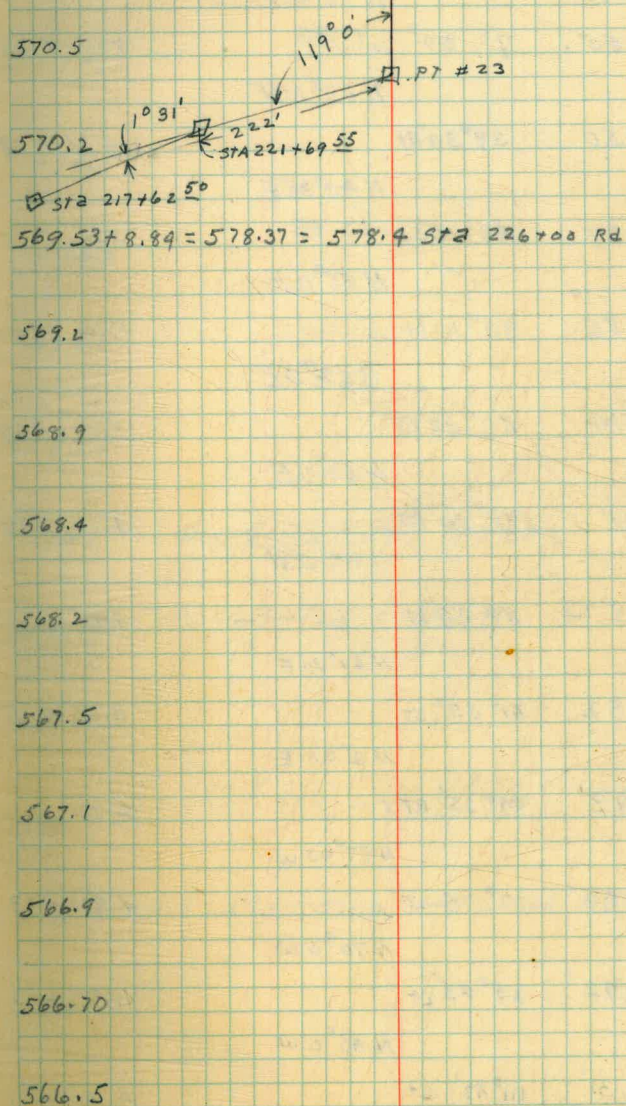 570.5
119° 0'
PT #23
1° 31'
222'
570.2
STA 221+69 55
Sta 217+62 50
569.53 + 8.84 = 578.37 = 578.4 Sta 226+00 Rd
569.2
568.9
568.4
568.2
567.5
567.1
566.9
566.70
566.5